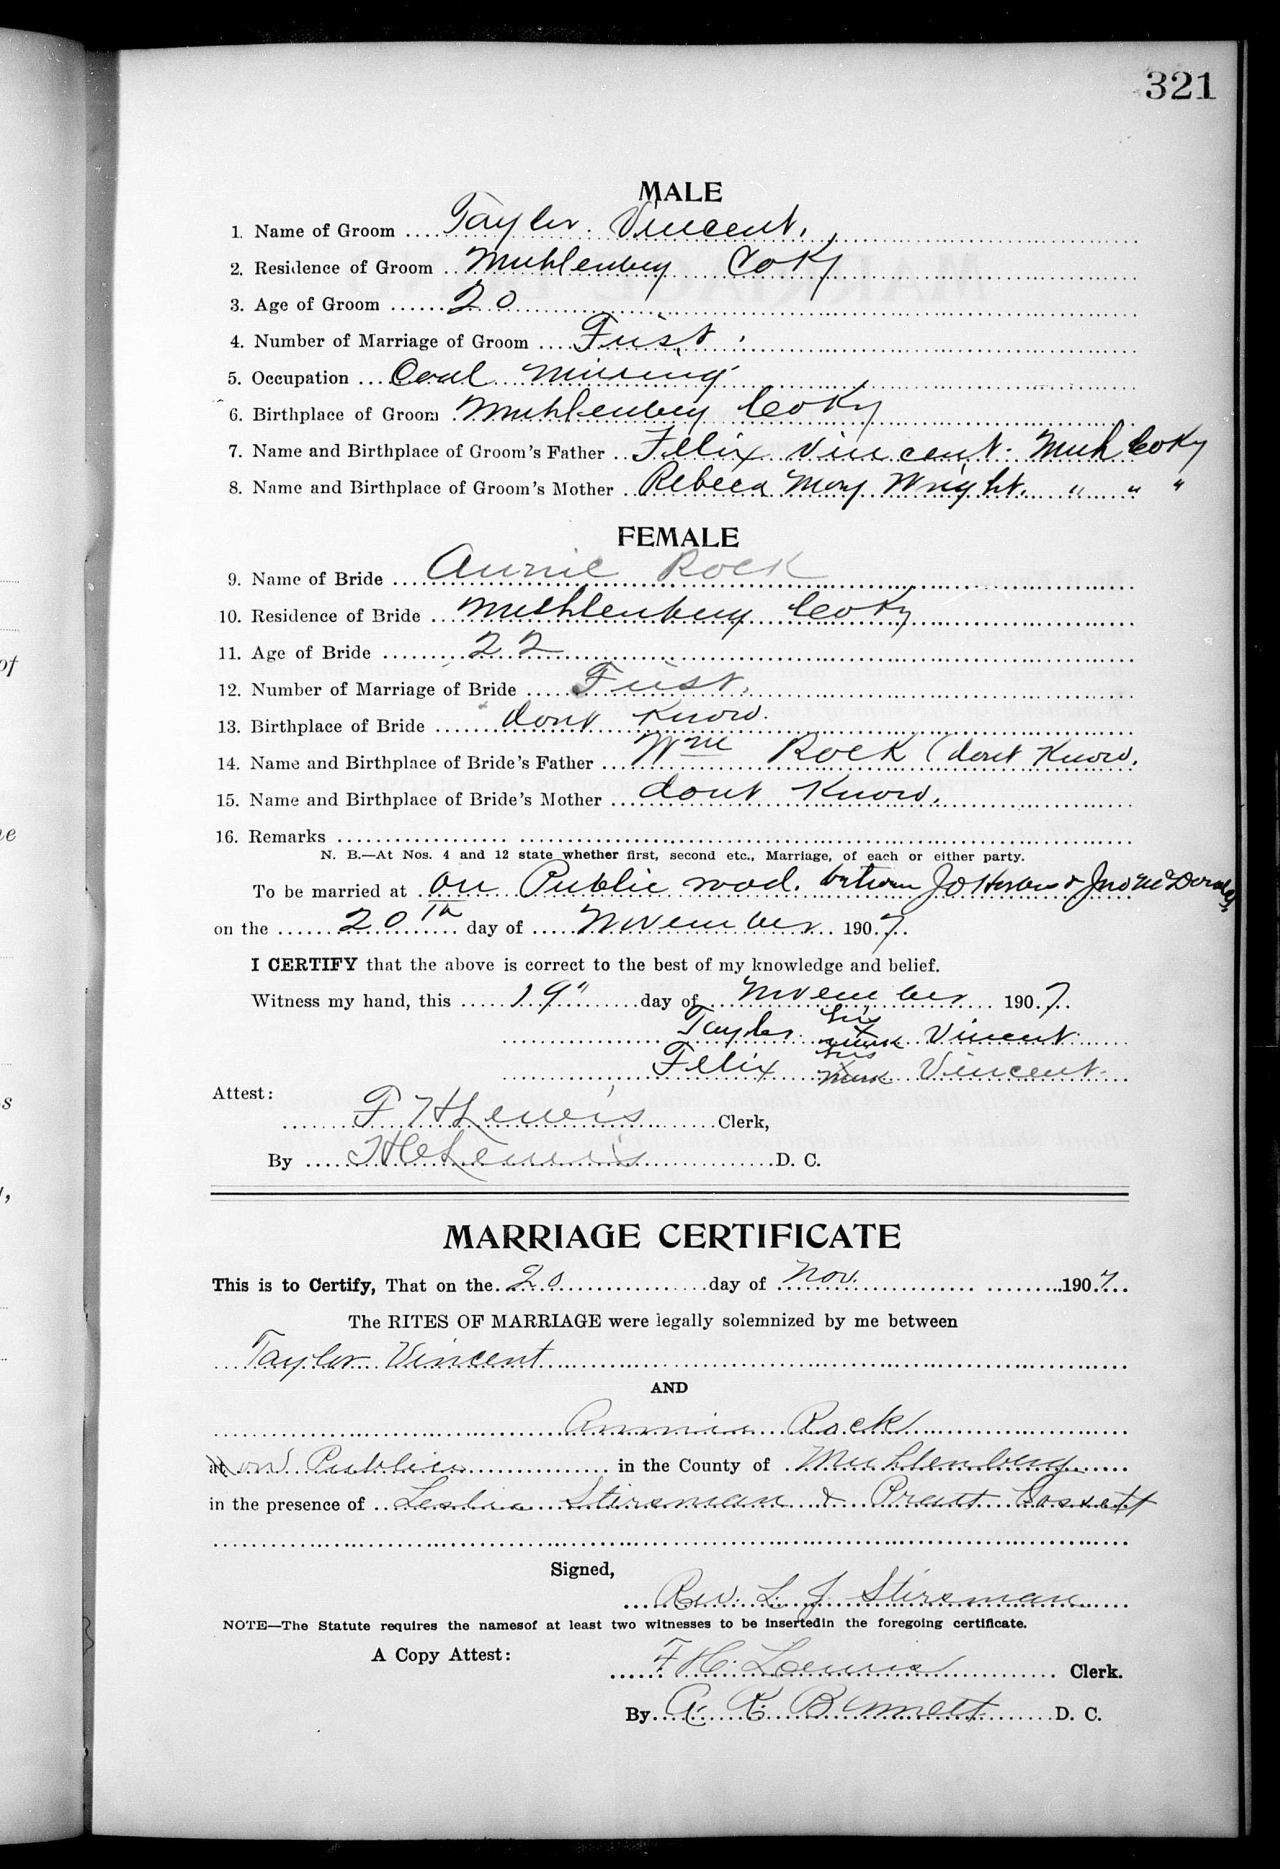 321
MALE
1. Name of Groom Taylor Vincent.
2. Residence of Groom Muhlenberg Co Ky
3. Age of Groom 20
4. Number of Marriage of Groom First
5. Occupation Coal Mining
6. Birthplace of Groom Muhlenberg Co Ky
7. Name and Birthplace of Groom's Father Felix Vincent. Muh Co Ky
8. Name and Birthplace of Groom's Mother Rebeca Mary Wright. " " "
FEMALE
9. Name of Bride Annie Rock
10. Residence of Bride Muhlenberg Co Ky
11. Age of Bride 22
12. Number of Marriage of Bride First.
13. Birthplace of Bride dont Know.
14. Name and Birthplace of Bride's Father Wm Rock (dont Know.
15. Name and Birthplace of Bride's Mother dont Know.
16. Remarks
N. B.—At Nos. 4 and 12 state whether first, second etc., Marriage, of each or either party.
To be married at on Public road. between J D & Jno McDonald
on the 20th day of November 1907.
I CERTIFY that the above is correct to the best of my knowledge and belief.
Witness my hand, this 19" day of November 1907.
Taylor his x mark Vincent
Felix his x mark Vincent
Attest:
F H Lewis Clerk,
By H C Lewis D. C.
MARRIAGE CERTIFICATE
This is to Certify, That on the 20 day of Nov. 1907.
The RITES OF MARRIAGE were legally solemnized by me between
Taylor Vincent
AND
Annie Rock
at on Public in the County of Muhlenberg
in the presence of Leslie Stirsman & Pratt Gossett
Signed,
Rev. L. J. Stirsman
NOTE—The Statute requires the namesof at least two witnesses to be insertedin the foregoing certificate.
A Copy Attest:
F H. Lewis Clerk.
By A. K. Bennett D. C.
of